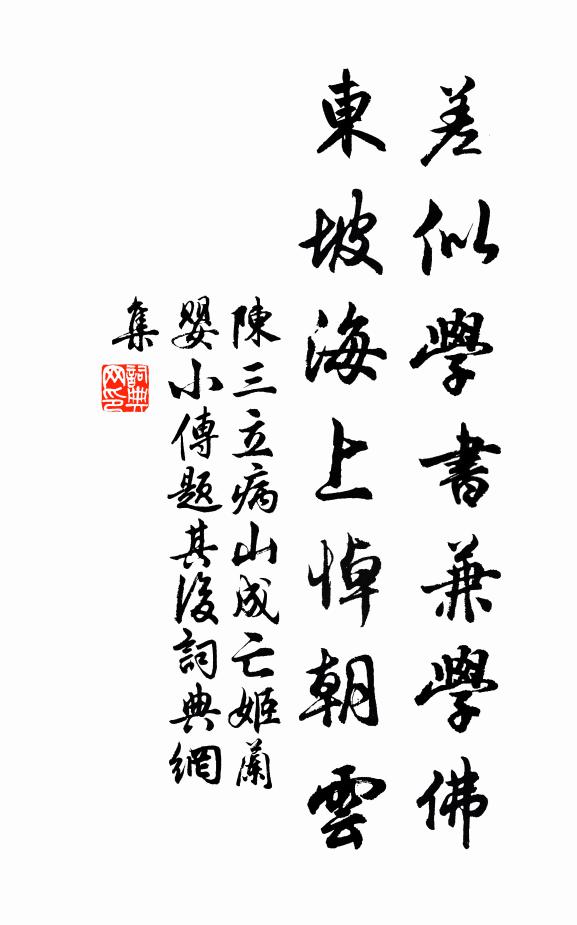 差似學書兼學佛
東坡海上悼朝雲
陳三立病山成亡姬蘭
嬰小傳題其後詞典網
集
詞典
网印